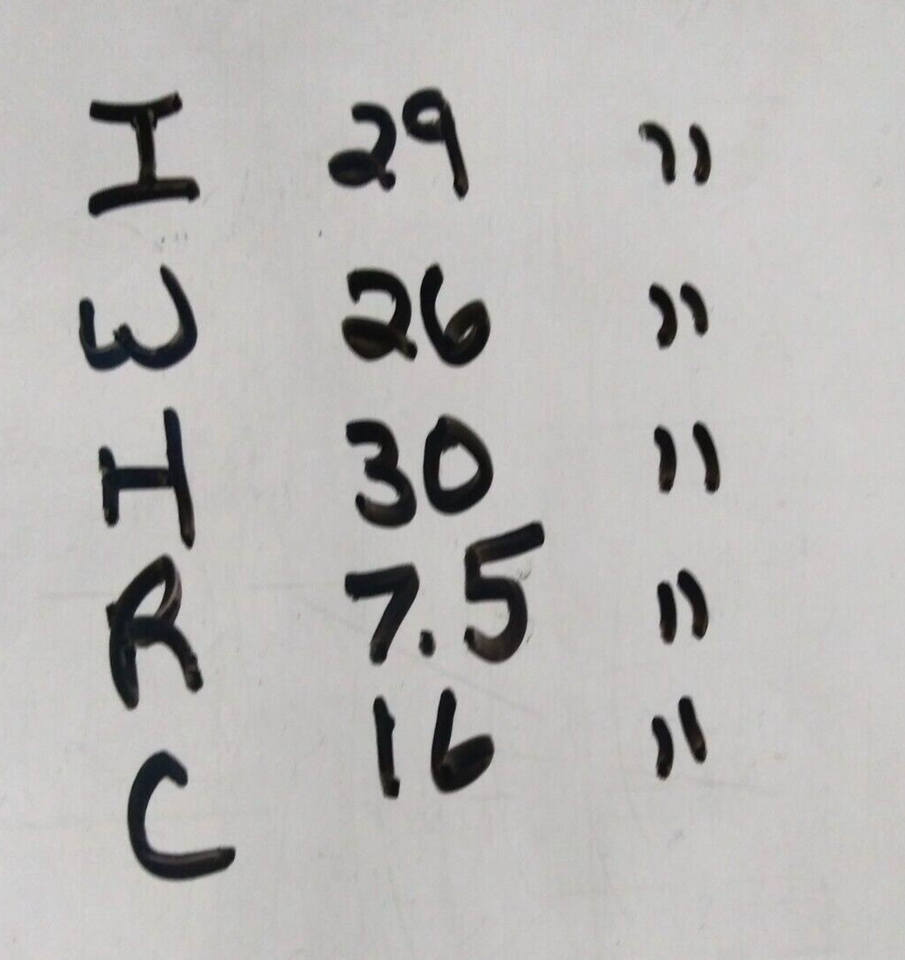 I 29 "
W 26 "
I 30 "
R 7.5 "
C 16 "